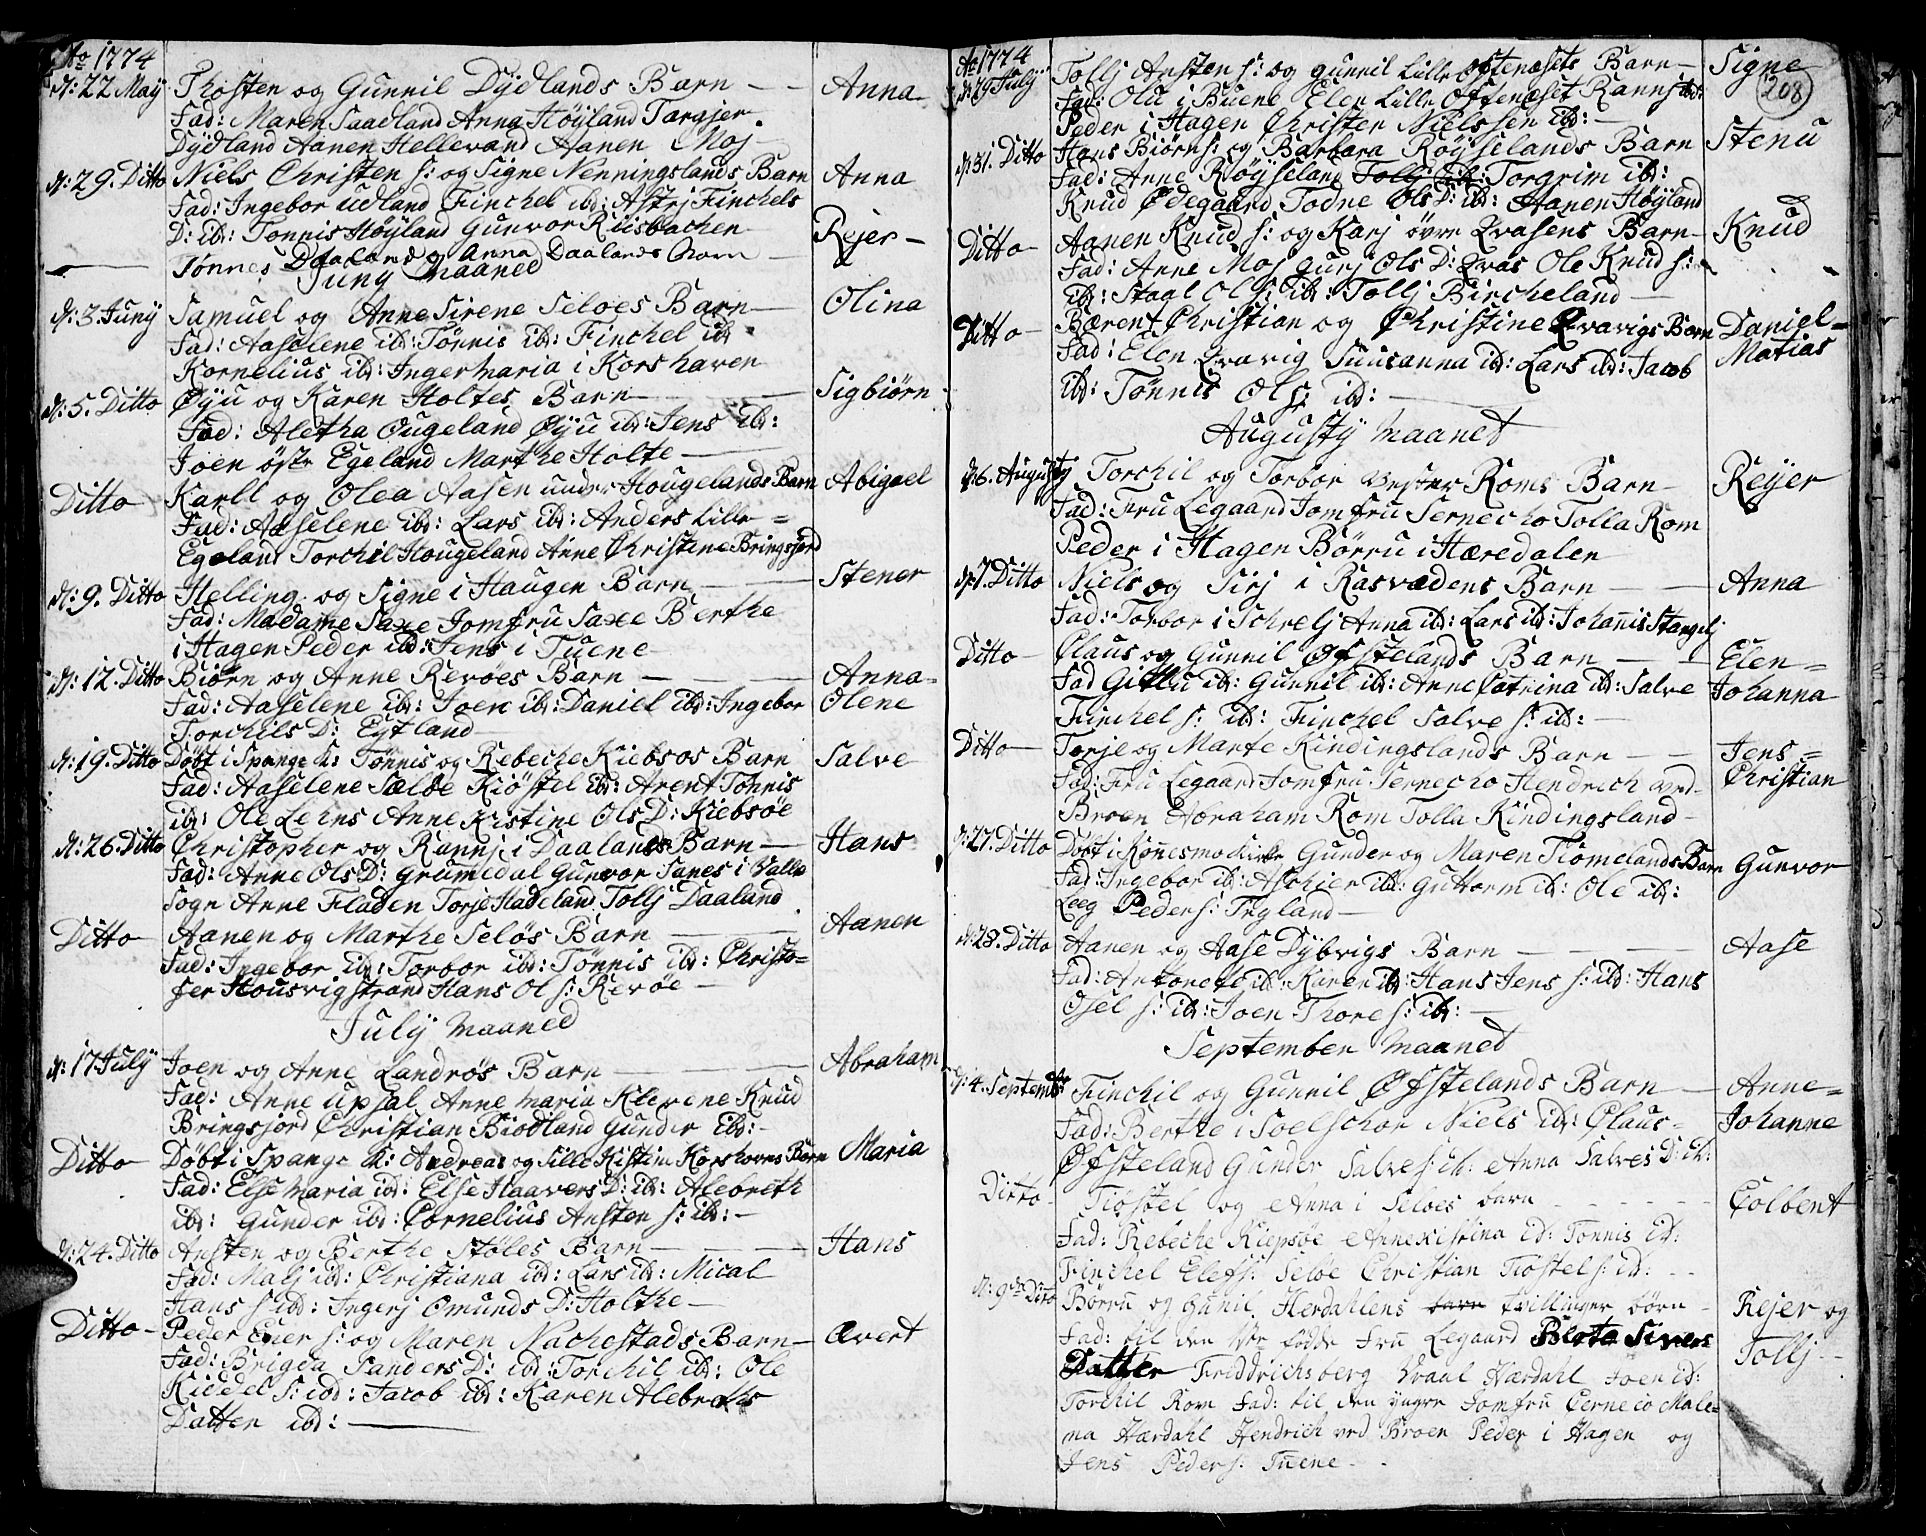 Ao 1774
d: 22 May Thosten og Gunnil Dydlands Barn - - Anna
Fad: Maren Saadland Anna Høyland Targjer
Dydland Aanen Hellevand Aanen Moj
d: 29. Ditto Niels Christen S: og Signe Nenningslands Barn Anna
Fad: Ingebor udland Finchel ibd: Astrj Finchels
D: ib: Tønnis Høyland Gunvor Riisbachen
Tønnes Daalands og Anna Daalands Barn - Rejer -
Juny Maaned
d: 3. Juny Samuel og Anne Sirene Seloes Barn Olina
Fad: Aaselene ibd: Tønnis ib: Finchel ib
Kornelius ibd: Inger Maria i Kors haven
d: 5. Ditto Øyu og Karen Holtes Barn Sigbiørn
Fad: Aletha Ougeland Øyu ibd: Jens ibd:
Joen østr Egeland Marthe Holte
Ditto Karll og Olea Aasen under Hougelands Barn Abigael
Fad: Aaselene ibd: Lars ibd: Anders Lille =
Egeland Torchil Hougeland Anne Christine Bringsjord
d: 9. Ditto Helling og Signe i Haugen Barn Stener
Fad: Madame Saxe Jomfru Saxe Berthe
i Hagen Peder ibd: Jens i Tuene
d: 12. Ditto Biørn og Anne Revøes Barn Anna=
Fad: Aaselene ib: Joen ib: Daniel ibd: Ingebor Olene
Torchils D: Eytland
d: 19. Ditto Døbt i Spange K: Tønnis og Rebeche Kiebsos Barn Salve
Fad: Aaselene Sæløe Kiøstel ibd: Arent Tønnis
ibd: Ole Lehns Anne Kistine Ols D: Kiebsøe
d: 26. Ditto Christopher og Rannj i Daalands Barn Hans
Fad: Anne Ols D: Grumedal Gunvor Sanes i Valle
Sogn Anne Fladen Torje Hadeland Tollj Daaland
Ditto Aanen og Marthe Seløs Barn Aanen
Fad: Ingebor ib: Torbor ibd: Tønnis ibd: Christo=
fer Housvigstrand Hans Ol S: Revøe -
July Maaned
d: 17 July Joen og Anne Landrøs Barn Abraham
Fad: Anne Upsal Anne Maria Klevene Knud
Bringsjord Christian Biodland Gunder Ibd:
Ditto Døbt i Spange K: Andreas og Sille Kistin Korshavns Barn Maria
Fad: Else Maria ib: Else Haavers D: ib: Alebreth
ib: Gunder ibd: Cornelius Ansten S: ib: -
d: 24. Ditto Ansten og Berthe Støles Barn Hans
Fad: Malj ib: Christiana ibd: Lars ib: Mical
Hans S: ibd: Ingerj Omunds D: Holthe
Ditto - Peder Ever S: og Maren Nachestads Barn Ævert
Fad: Brigda Sanders D: ibd: Torchil ib: Ole
Kiddel S: ibd: Jacob ib: Karen Alebreths
Datter ibd:
Ao 1774
208
d: 29 July Tollj Ansten S: og Gunnil Lille Oftenæsets Barn Signe
Fad: Olu i Buene Elen Lille Oftenæset Rannj ibd:
Peder i Hagen Christen Nielssen ib:
d: 31. Ditto Hans Biørn S: og Barbara Røyselands Barn Stenu
Fad: Anne Røyseland Tollj ib: Torgrim ib:
Knud Ødegaard Todne Ols D: ib: Aanen Høyland
Ditto Aanen Knud S: og Karj øvre Qvasens Barn Knud
Fad: Anne Moj Gurj Ols D: Qvas Ole Knud S:
ib: Stagl Ol S: ib: Tollj Bircheland
Ditto Bærent Christian og Christine Qvavigs Barn Daniel=
Fad: Elen Qvavig Suusanna ibd: Lars ibd: Jacob Matias
ibd: Tønnis Ols: ibd:
Augusty Maanet
d: 6. Augusty Torchil og Torbor Vester Roms Barn Reyer
Fad: Fru Legaard Jomfru Sernecho Tolla Rom
Peder i Hagen Børru i Hæredalen
d: 7. Ditto Niels og Sirj i Rasvædens Barn Anna
Fad: Torbor i Schrelj Anna ibd: Lars ibd: Johannis Stangelj
Ditto Claus og Gunnil Øfstelands Barn Elen=
Fad Gitlu ib: Gunnil ib: Anne Catrina ib: Salve Johanna
Finchel S: ibd: Finchel Salve S: ib:
Ditto Torje og Marte Kindingslands Barn Jens=
Fad: Fru Legaard Jomfru Sernecho Hendrich ved Christian
Broen Abraham Rom Tolla Kindingsland
d: 27. Ditto Døbt i Konnesmo Kirke Gunder og Maren Tiomelands Barn Gunvor
Fad: Ingebor ib: Aschier ibd: Guttorm ib: Ole ib:
Leeg Peder S: Trgland
d: 28. Ditto Aanen og Aase Dybvigs Barn Aase
Fad: Antonete ib: Karen ib: Hans Jens S: ibd: Hans
Osel S: ib: Joen Thore S: ib:
September Maanet
d: 4. Septembr Finchil og Gunnil Øfstelands Barn Anne=
Fad: Berthe i Soelschor Niels ib: Claus= Johanne
Øfsteland Gunder Salve S: ib: Anna Salves D: ib:
Ditto Tiostel og Anna i Seloes barn Colbent
Fad: Rebeche Kiepsøe Annexistina id: Tonnis id:
Finchel Elefs: Seloe Christian Tiostel S: id:
d: 9de Dito Børru og Gunil Herdahlens barn tvillinger børn Rejer og
Fad: til den stØr fødde Fru Legaard Beate Sivers Tollj
Datter Friddrichsberg Vraal Hærdahl Joen id:
Torchil Rom Fad: til den yngre Jomfru Cerneco Male=
na Hærdahl Hendrich ved Broen Peder i Hagen og
Jens Peder S: Tuene